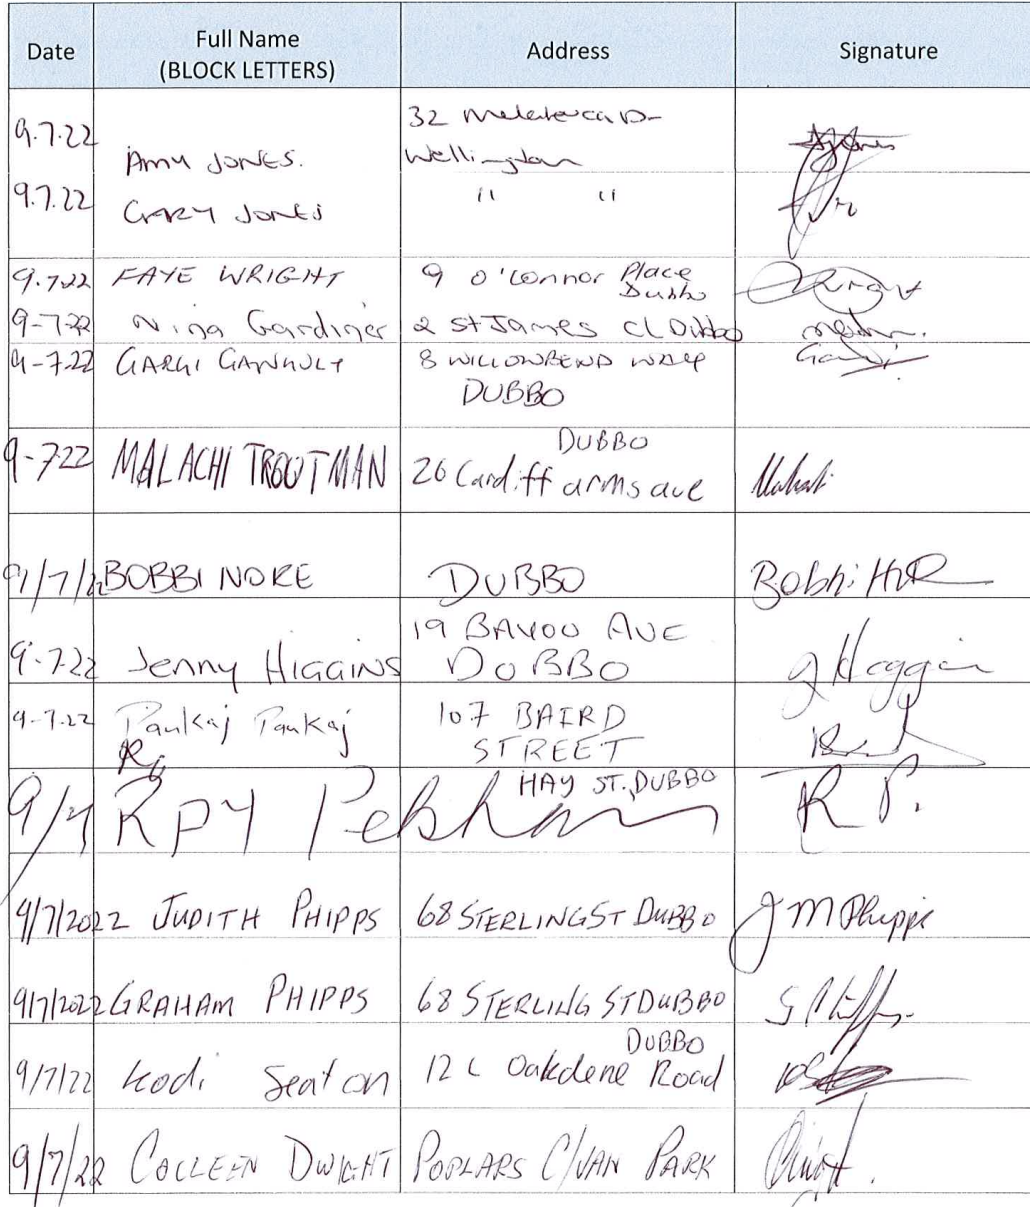 Date Full Name Address Signature
(BLOCK LETTERS)
9.7.22 AMY JONES. 32 Melaleuca Dr
Wellington
9.7.22 GARY JONES " "
9.7.22 FAYE WRIGHT 9 O'Connor Place
Dubbo
9-7-22 Nina Gardiner 2 St James Cl Dubbo
9-7.22 GARGI GANGULY 8 WILLOWBEND WAY
DUBBO
DUBBO
9-7.22 MALACHI TROUTMAN 26 Cardiff arms ave
9/7/22 BOBBI NORE DUBBO Bobbi
19 BAYOO AVE
9.7.22 Jenny HIGGINS DUBBO J Higgins
9-7.22 Pankaj Pankaj 107 BAIRD
STREET
HAY ST., DUBBO
9/7 ROY R P.
9/7/2022 JUDITH PHIPPS 68 STERLING ST DUBBO J M Phipps
9/7/2022 GRAHAM PHIPPS 68 STERLING ST DUBBO G Phipps
DUBBO
9/7/22 Kodi Seaton 12 L Oakdene Road
9/7/22 COLLEEN DWIGHT POPLARS C/VAN PARK